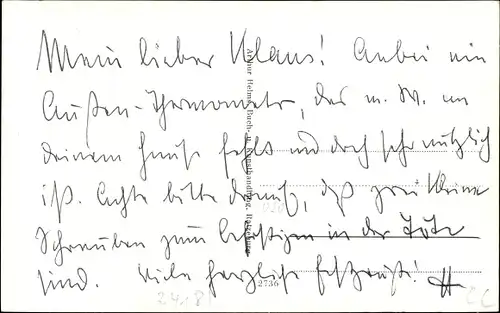 Mein lieber Klaus! Anbei ein
Außen-Thermometer, das m. W. an
deinem Hause fehlt und doch sehr nützlich
ist. Achte bitte darauf, daß zwei kleine
Schrauben zum befestigen in der Tüte
sind. Viele herzliche Festgrüße! H
Arthur Helms, Buch- u. Kunsthandlung, Ratzeburg
2736